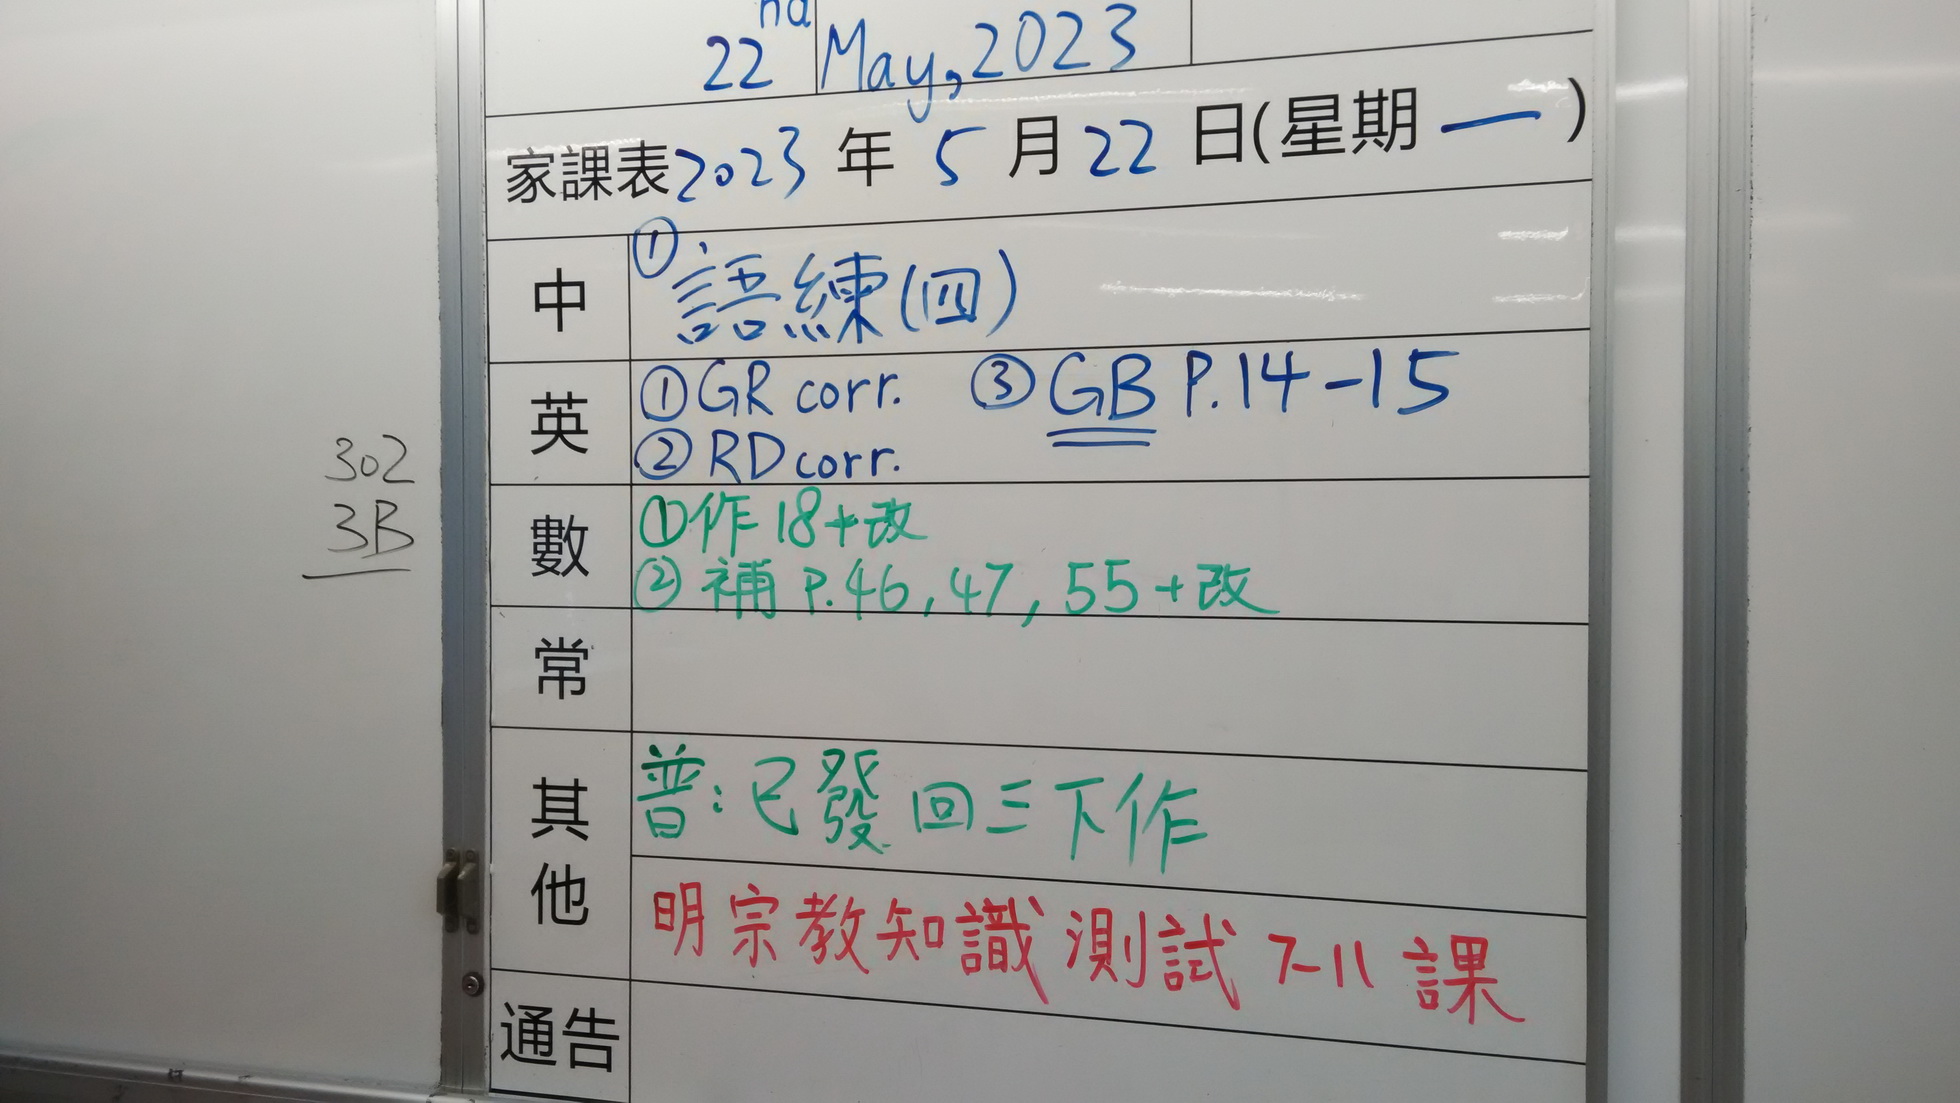 22nd May, 2023
家課表2023年5月22日(星期一)
中
①語練(四)
英
①GR corr. ③GB P.14-15
②RD corr.
302
3B
數
①作18+改
②補P.46,47,55+改
常
其他
普:已發回三下作
明宗教知識測試7-11課
通告